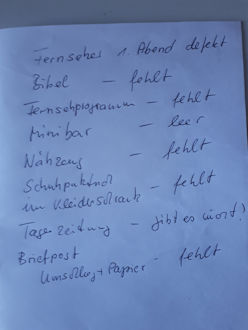 Fernseher 1. Abend defekt
Bibel - fehlt
Fernsehprogramm - fehlt
Minibar - leer
Nähzeug - fehlt
Schuhputztuch
im Kleiderschrank - fehlt
Tageszeitung - gibt es nicht!
Briefpost
Umschlag + Papier - fehlt